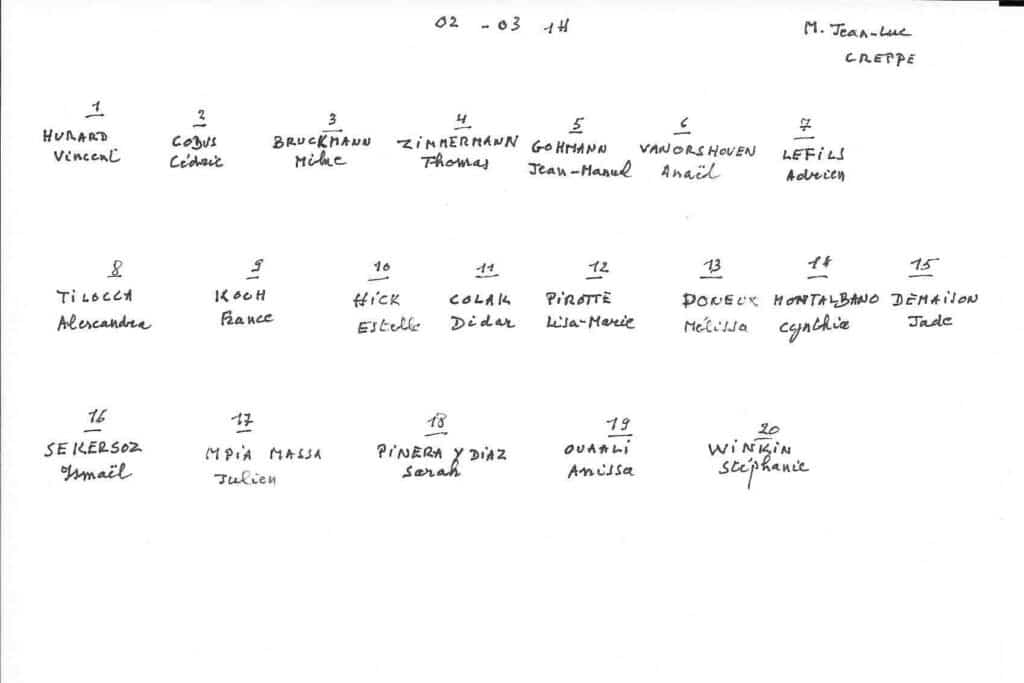 02 - 03 1H
M. Jean-Luc
CREPPE
1 2 3 4 5 6 7
HURARD COBUS BRUCKMANN ZIMMERMANN GOHMANN VANORSHOVEN LEFILS
Vincent Cédric Thomas Jean-Manuel Anaël Adrien
8 9 10 11 12 13 14 15
TILOCCA KOCH HICK COLAK PIROTTE DONEUX MONTALBANO DEMAISON
Alexandra France Estelle Didar Lisa-Marie Mélissa Cynthia Jade
16 17 18 19 20
SEKERSOZ MPIA MASSA PINERA Y DIAZ OUAALI WINKIN
Ismaël Julien Sarah Anissa Stéphanie